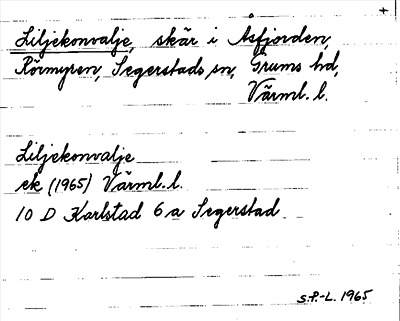 +
Liljekonvalje, skär i Åsfjorden,
Rörmyren, Segerstads sn, Grums hd,
Värml. l.
Liljekonvalje
ek (1965) Värml. l.
10 D Karlstad 6 a Segerstad
S.P.-L. 1965